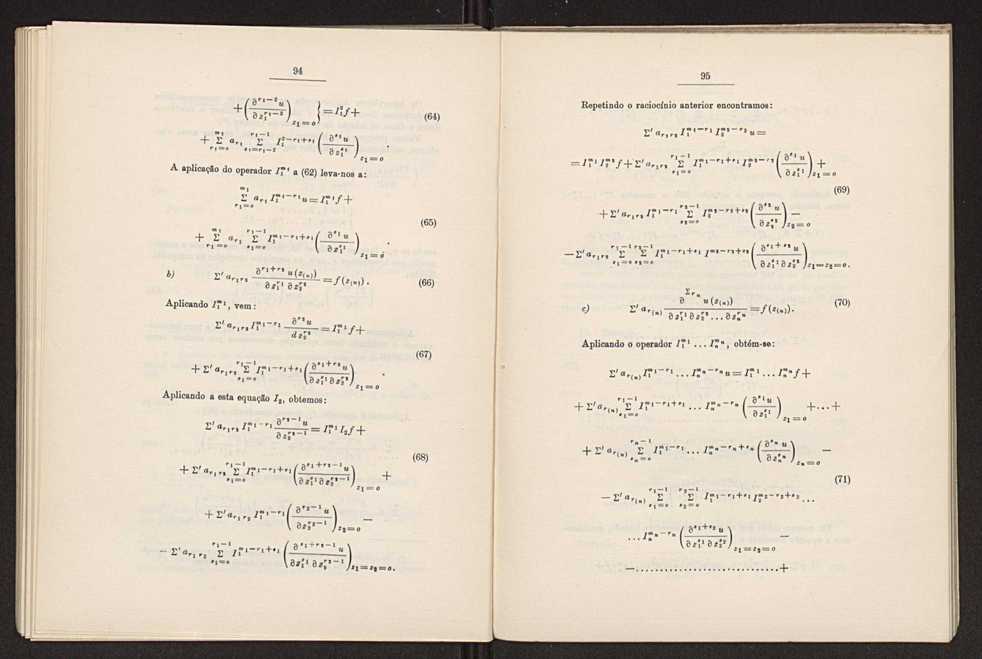 94
+(∂^{r₁−2}u / ∂z₁^{r₁−2})_{z₁=o}} = I₁²f +
(64)
+ Σ_{r₁=o}^{m₁} a_{r₁} Σ_{s₁=r₁−2}^{r₁−1} I₁^{2−r₁+s₁} (∂^{s₁}u / ∂z₁^{s₁})_{z₁=o}.
A aplicação do operador I₁^{m₁} a (62) leva-nos a:
Σ_{r₁=o}^{m₁} a_{r₁} I₁^{m₁−r₁} u = I₁^{m₁} f +
(65)
+ Σ_{r₁=o}^{m₁} a_{r₁} Σ_{s₁=o}^{r₁−1} I₁^{m₁−r₁+s₁} (∂^{s₁}u / ∂z₁^{s₁})_{z₁=o}.
b) Σ′ a_{r₁r₂} ∂^{r₁+r₂} u(z_{(n)}) / ∂z₁^{r₁} ∂z₂^{r₂} = f(z_{(n)}). (66)
Aplicando I₁^{m₁}, vem:
Σ′ a_{r₁r₂} I₁^{m₁−r₁} ∂^{r₂}u / dz₂^{r₂} = I₁^{m₁} f +
(67)
+ Σ′ a_{r₁r₂} Σ_{s₁=o}^{r₁−1} I₁^{m₁−r₁+s₁} (∂^{s₁+r₂}u / ∂z₁^{s₁} ∂z₂^{r₂})_{z₁=o}.
Aplicando a esta equação I₂, obtemos:
Σ′ a_{r₁r₂} I₁^{m₁−r₁} ∂^{r₂−1}u / ∂z₂^{r₂−1} = I₁^{m₁} I₂ f +
(68)
+ Σ′ a_{r₁r₂} Σ_{s₁=o}^{r₁−1} I₁^{m₁−r₁+s₁} (∂^{s₁+r₂−1}u / ∂z₁^{s₁} ∂z₂^{r₂−1})_{z₁=o} +
+ Σ′ a_{r₁r₂} I₁^{m₁−r₁} (∂^{r₂−1}u / ∂z₂^{r₂−1})_{z₂=o} −
− Σ′ a_{r₁r₂} Σ_{s₁=o}^{r₁−1} I₁^{m₁−r₁+s₁} (∂^{s₁+r₂−1}u / ∂z₁^{s₁} ∂z₂^{r₂−1})_{z₁=z₂=o}.
95
Repetindo o raciocínio anterior encontramos:
Σ′ a_{r₁r₂} I₁^{m₁−r₁} I₂^{m₂−r₂} u =
= I₁^{m₁} I₂^{m₂} f + Σ′ a_{r₁r₂} Σ_{s₁=o}^{r₁−1} I₁^{m₁−r₁+s₁} I₂^{m₂−r₂} (∂^{s₁}u / ∂z₁^{s₁})_{z₁=o} +
(69)
+ Σ′ a_{r₁r₂} I₁^{m₁−r₁} Σ_{s₂=o}^{r₂−1} I₂^{m₂−r₂+s₂} (∂^{s₂}u / ∂z₂^{s₂})_{z₂=o} −
− Σ′ a_{r₁r₂} Σ_{s₁=o}^{r₁−1} Σ_{s₂=o}^{r₂−1} I₁^{m₁−r₁+s₁} I^{m₂−r₂+s₂} (∂^{s₁+s₂}u / ∂z₁^{s₁} ∂z₂^{s₂})_{z₁=z₂=o}.
c) Σ′ a_{r(n)} ∂^{Σr_n} u(z_{(n)}) / ∂z₁^{r₁} ∂z₂^{r₂} ... ∂z_n^{r_n} = f(z_{(n)}). (70)
Aplicando o operador I₁^{m₁} ... I_n^{m_n}, obtém-se:
Σ′ a_{r(n)} I₁^{m₁−r₁} ... I_n^{m_n−r_n} u = I₁^{m₁} ... I_n^{m_n} f +
+ Σ′ a_{r(n)} Σ_{s₁=o}^{r₁−1} I₁^{m₁−r₁+s₁} ... I_n^{m_n−r_n} (∂^{s₁}u / ∂z₁^{s₁})_{z₁=o} + ... +
+ Σ′ a_{r(n)} Σ_{s_n=o}^{r_n−1} I₁^{m₁−r₁} ... I_n^{m_n−r_n+s_n} (∂^{s_n}u / ∂z_n^{s_n})_{z_n=o} −
(71)
− Σ′ a_{r(n)} Σ_{s₁=o}^{r₁−1} Σ_{s₂=o}^{r₂−1} I₁^{m₁−r₁+s₁} I₂^{m₂−r₂+s₂} ...
... I_n^{m_n−r_n} (∂^{s₁+s₂}u / ∂z₁^{s₁} ∂z₂^{s₂})_{z₁=z₂=o} −
− ............................ +